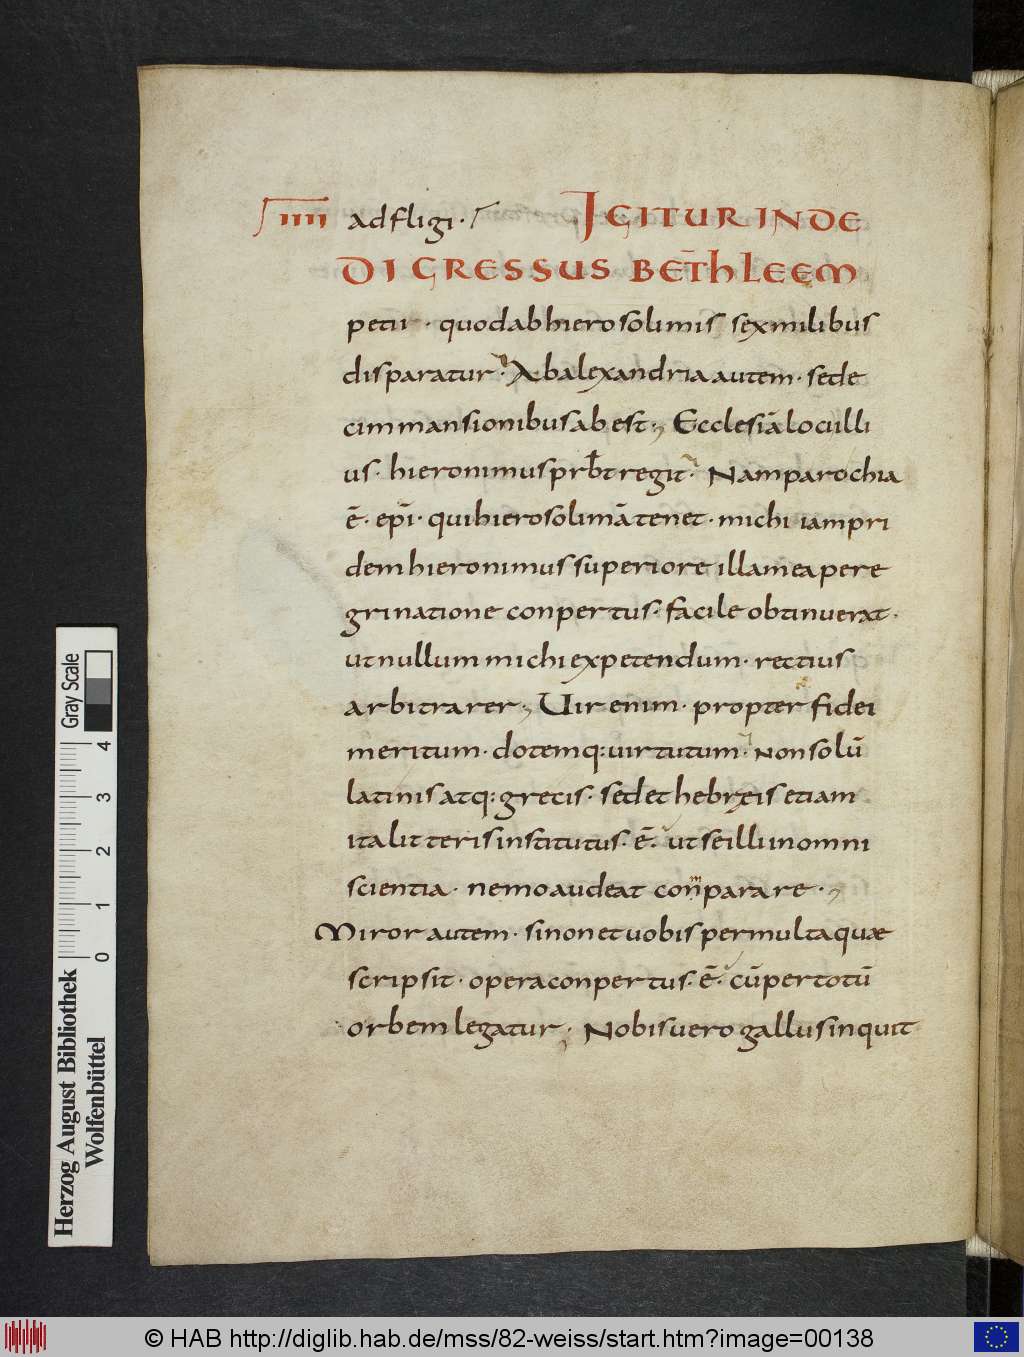 IIII adfligi · IGITUR INDE
DIGRESSUS BETHLEEM
petii · quodabhierosolimis sexmilibus
disparatur · Abalexandria autem · sede
cim mansionibus abest · Ecclesiā loci illi
us · hieronimus prƀt regit · Nam parochia
ē · epī · quihierosolimā tenet · michi iampri
dem hieronimus superiore illamea pere
grinatione conpertus · facile obtinuerat ·
ut nullum michi expetendum · rectius
arbitrarer · Uir enim · propter fidei
meritum · dotemq: uirtutum · Non solū
latinis atq: grecis · sed et hebreis etiam
ita litteris institutus · ē · ut se illi in omni
scientia · nemo audeat conparare ·
Miror autem · si non et uobis per multa quae
scripsit · opera conpertus · ē · cū per totū
orbem legatur · Nobis uero gallus inquit
Herzog August Bibliothek
Wolfenbüttel
0 1 2 3 4
Gray Scale
© HAB http://diglib.hab.de/mss/82-weiss/start.htm?image=00138